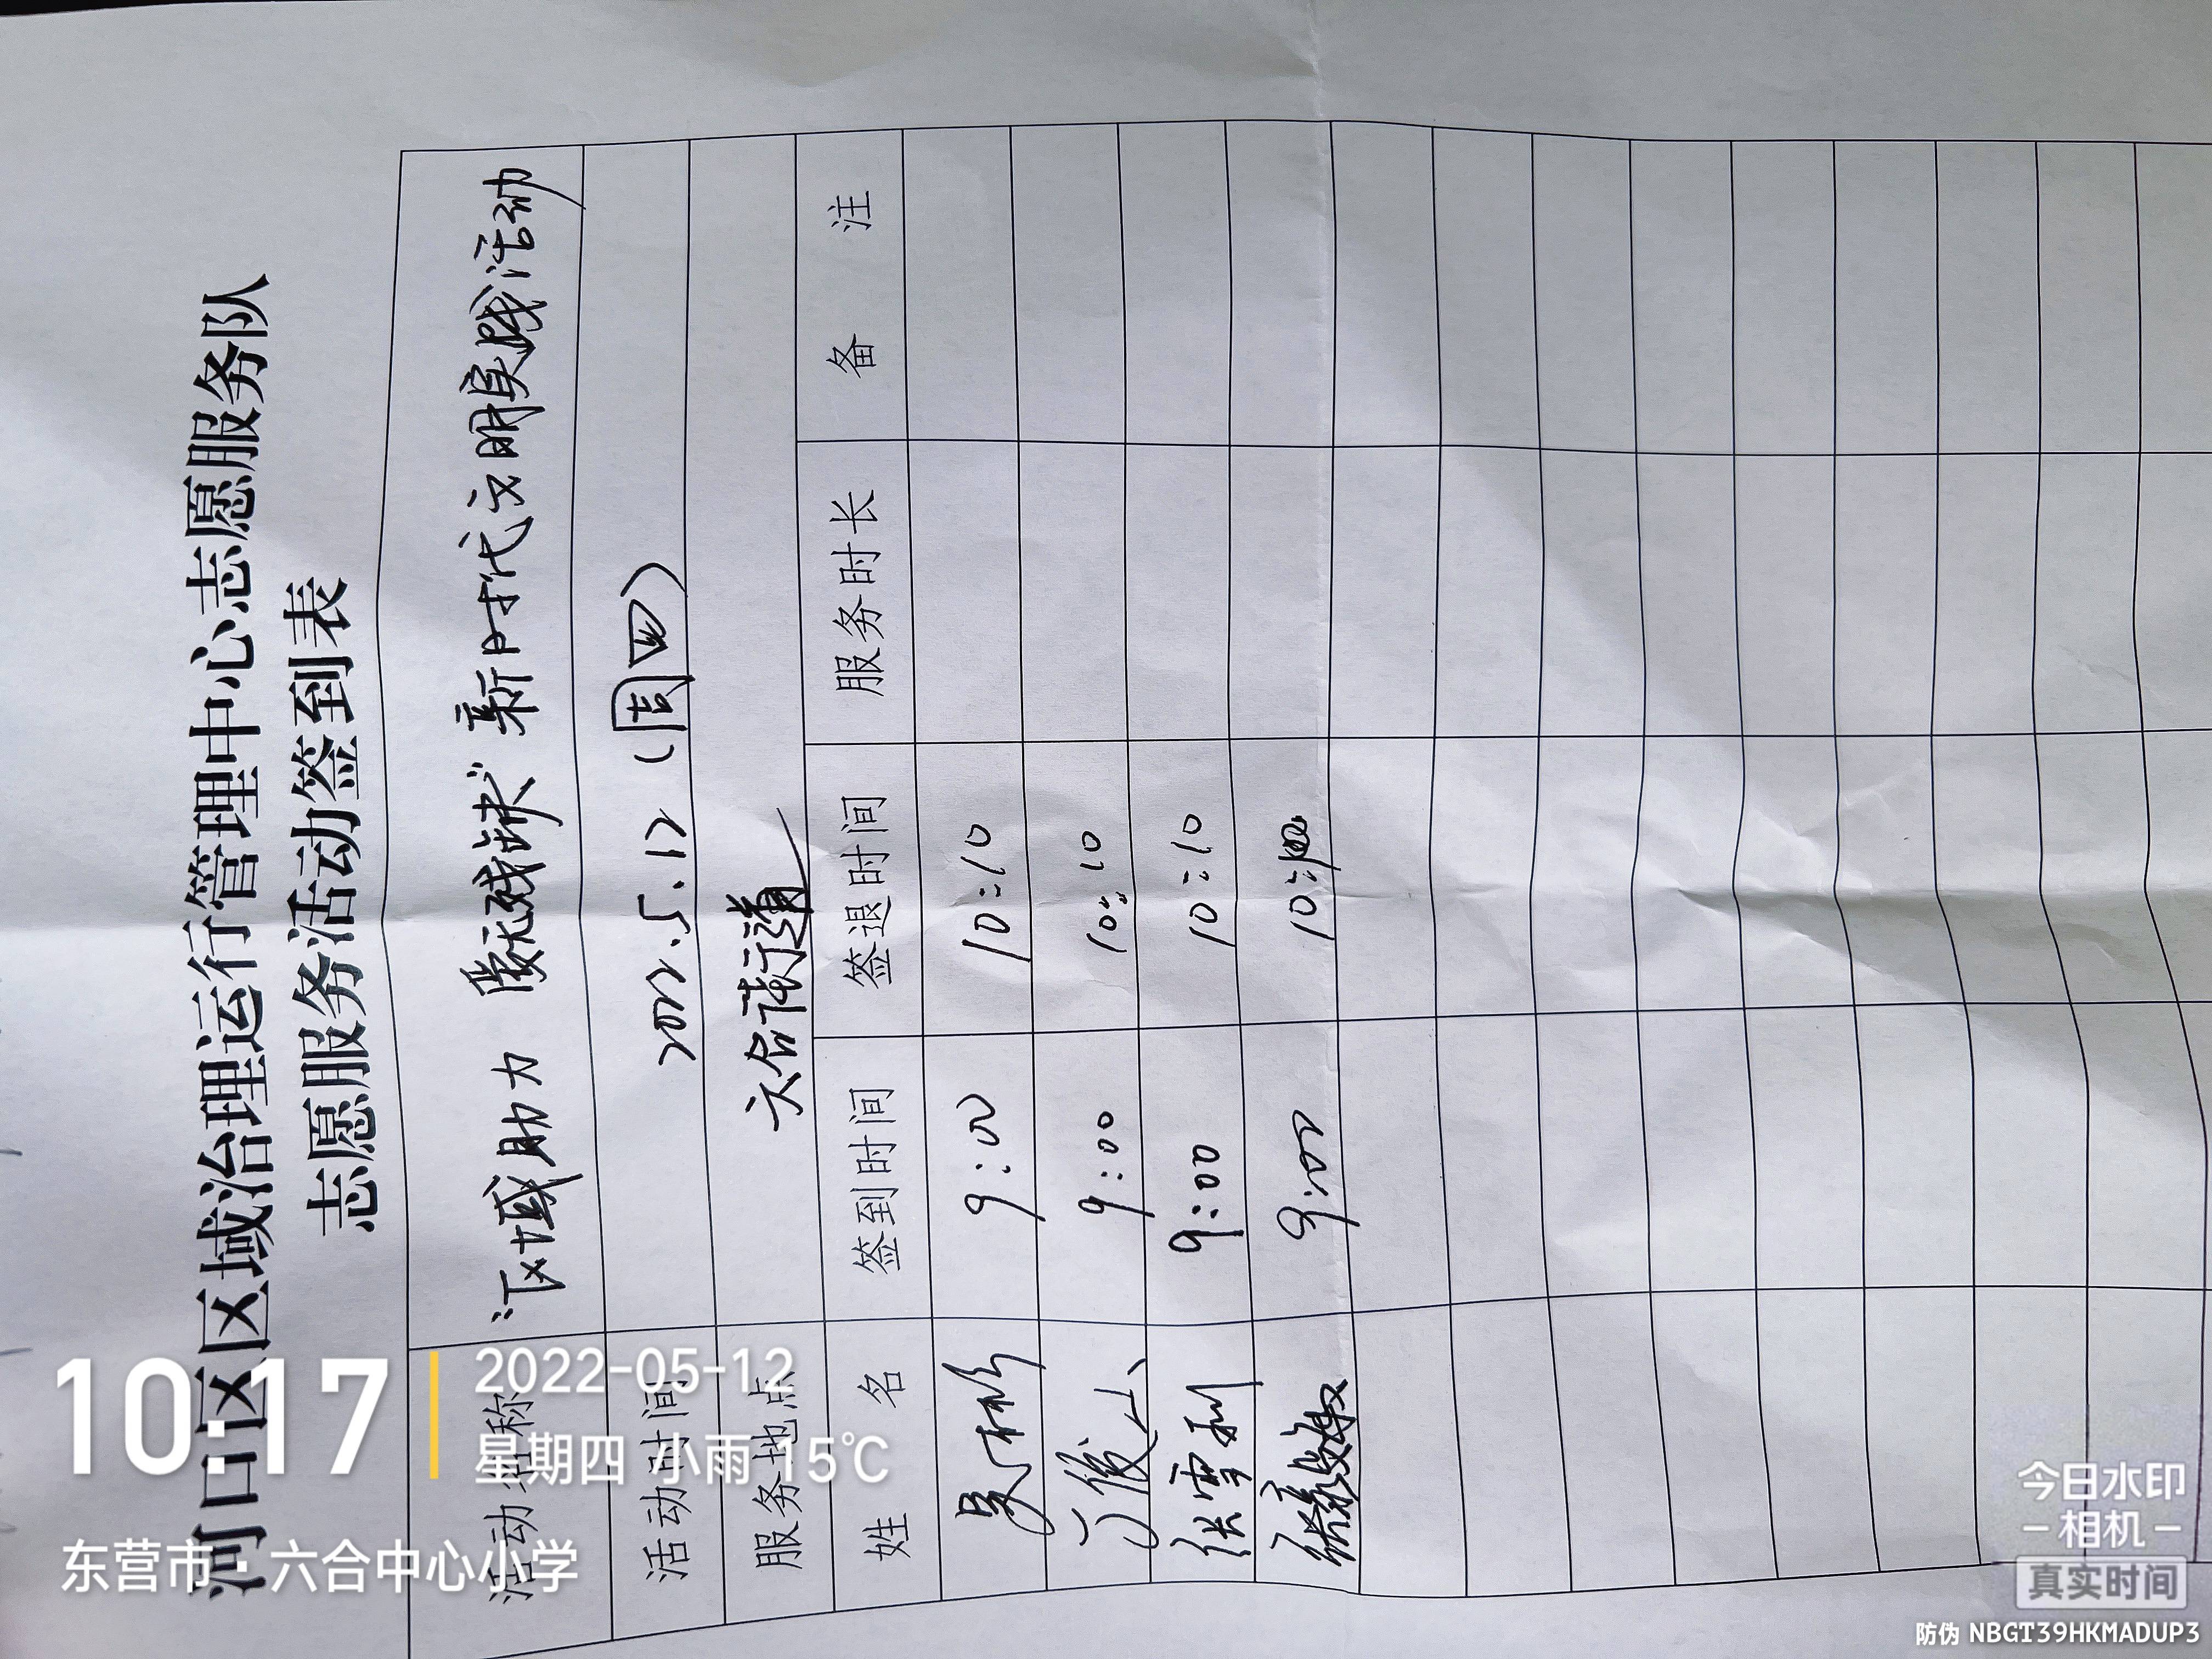 河口区区域治理运行管理中心志愿服务队
志愿服务活动签到表
活动名称 "区域助力 爱无残缺" 新时代文明实践活动
活动时间 2022.5.12 (周四)
服务地点 六合街道
姓 名 签到时间 签退时间 服务时长 备 注
9:00 10:10
9:00 10:10
张雪利 9:00 10:10
9:00 10:10
10:17
2022-05-12
星期四 小雨 15℃
东营市·六合中心小学
今日水印
相机
真实时间
防伪 NBGT39HKMADUP3